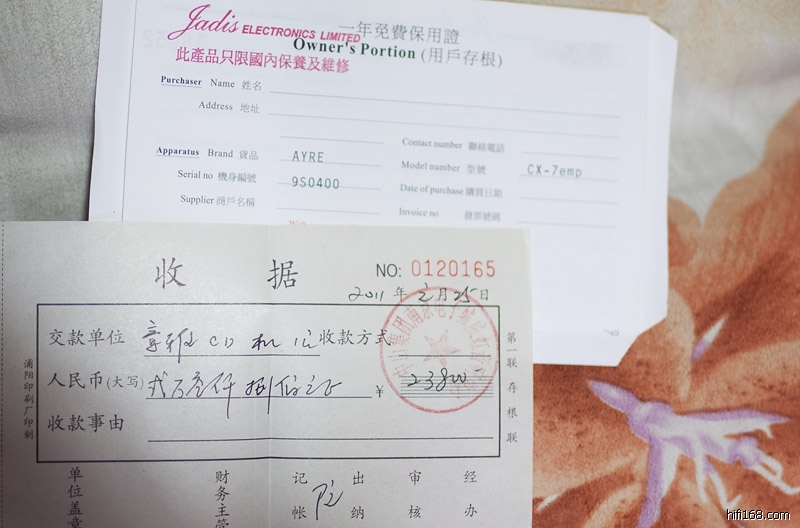 Jadis ELECTRONICS LIMITED
一年免費保用證
Owner's Portion (用戶存根)
此產品只限國內保養及維修
Purchaser Name 姓名
Address 地址
Contact number 聯絡電話
Apparatus Brand 貨品 AYRE
Model number 型號 CX-7emp
Serial no 機身編號 9S0400
Date of purchase 購買日期
Supplier 商戶名稱
Invoice no 發票號碼
收 据
NO: 0120165
2011 年 2 月 25 日
交款单位 CD 机 收款方式
人民币(大写) 弍万叁仟捌佰 ¥ 23800
收款事由
浦阳印刷厂印制
第一联存根联
单位盖章
财务主管
记帐
出纳
审核
经办
hifi168.com